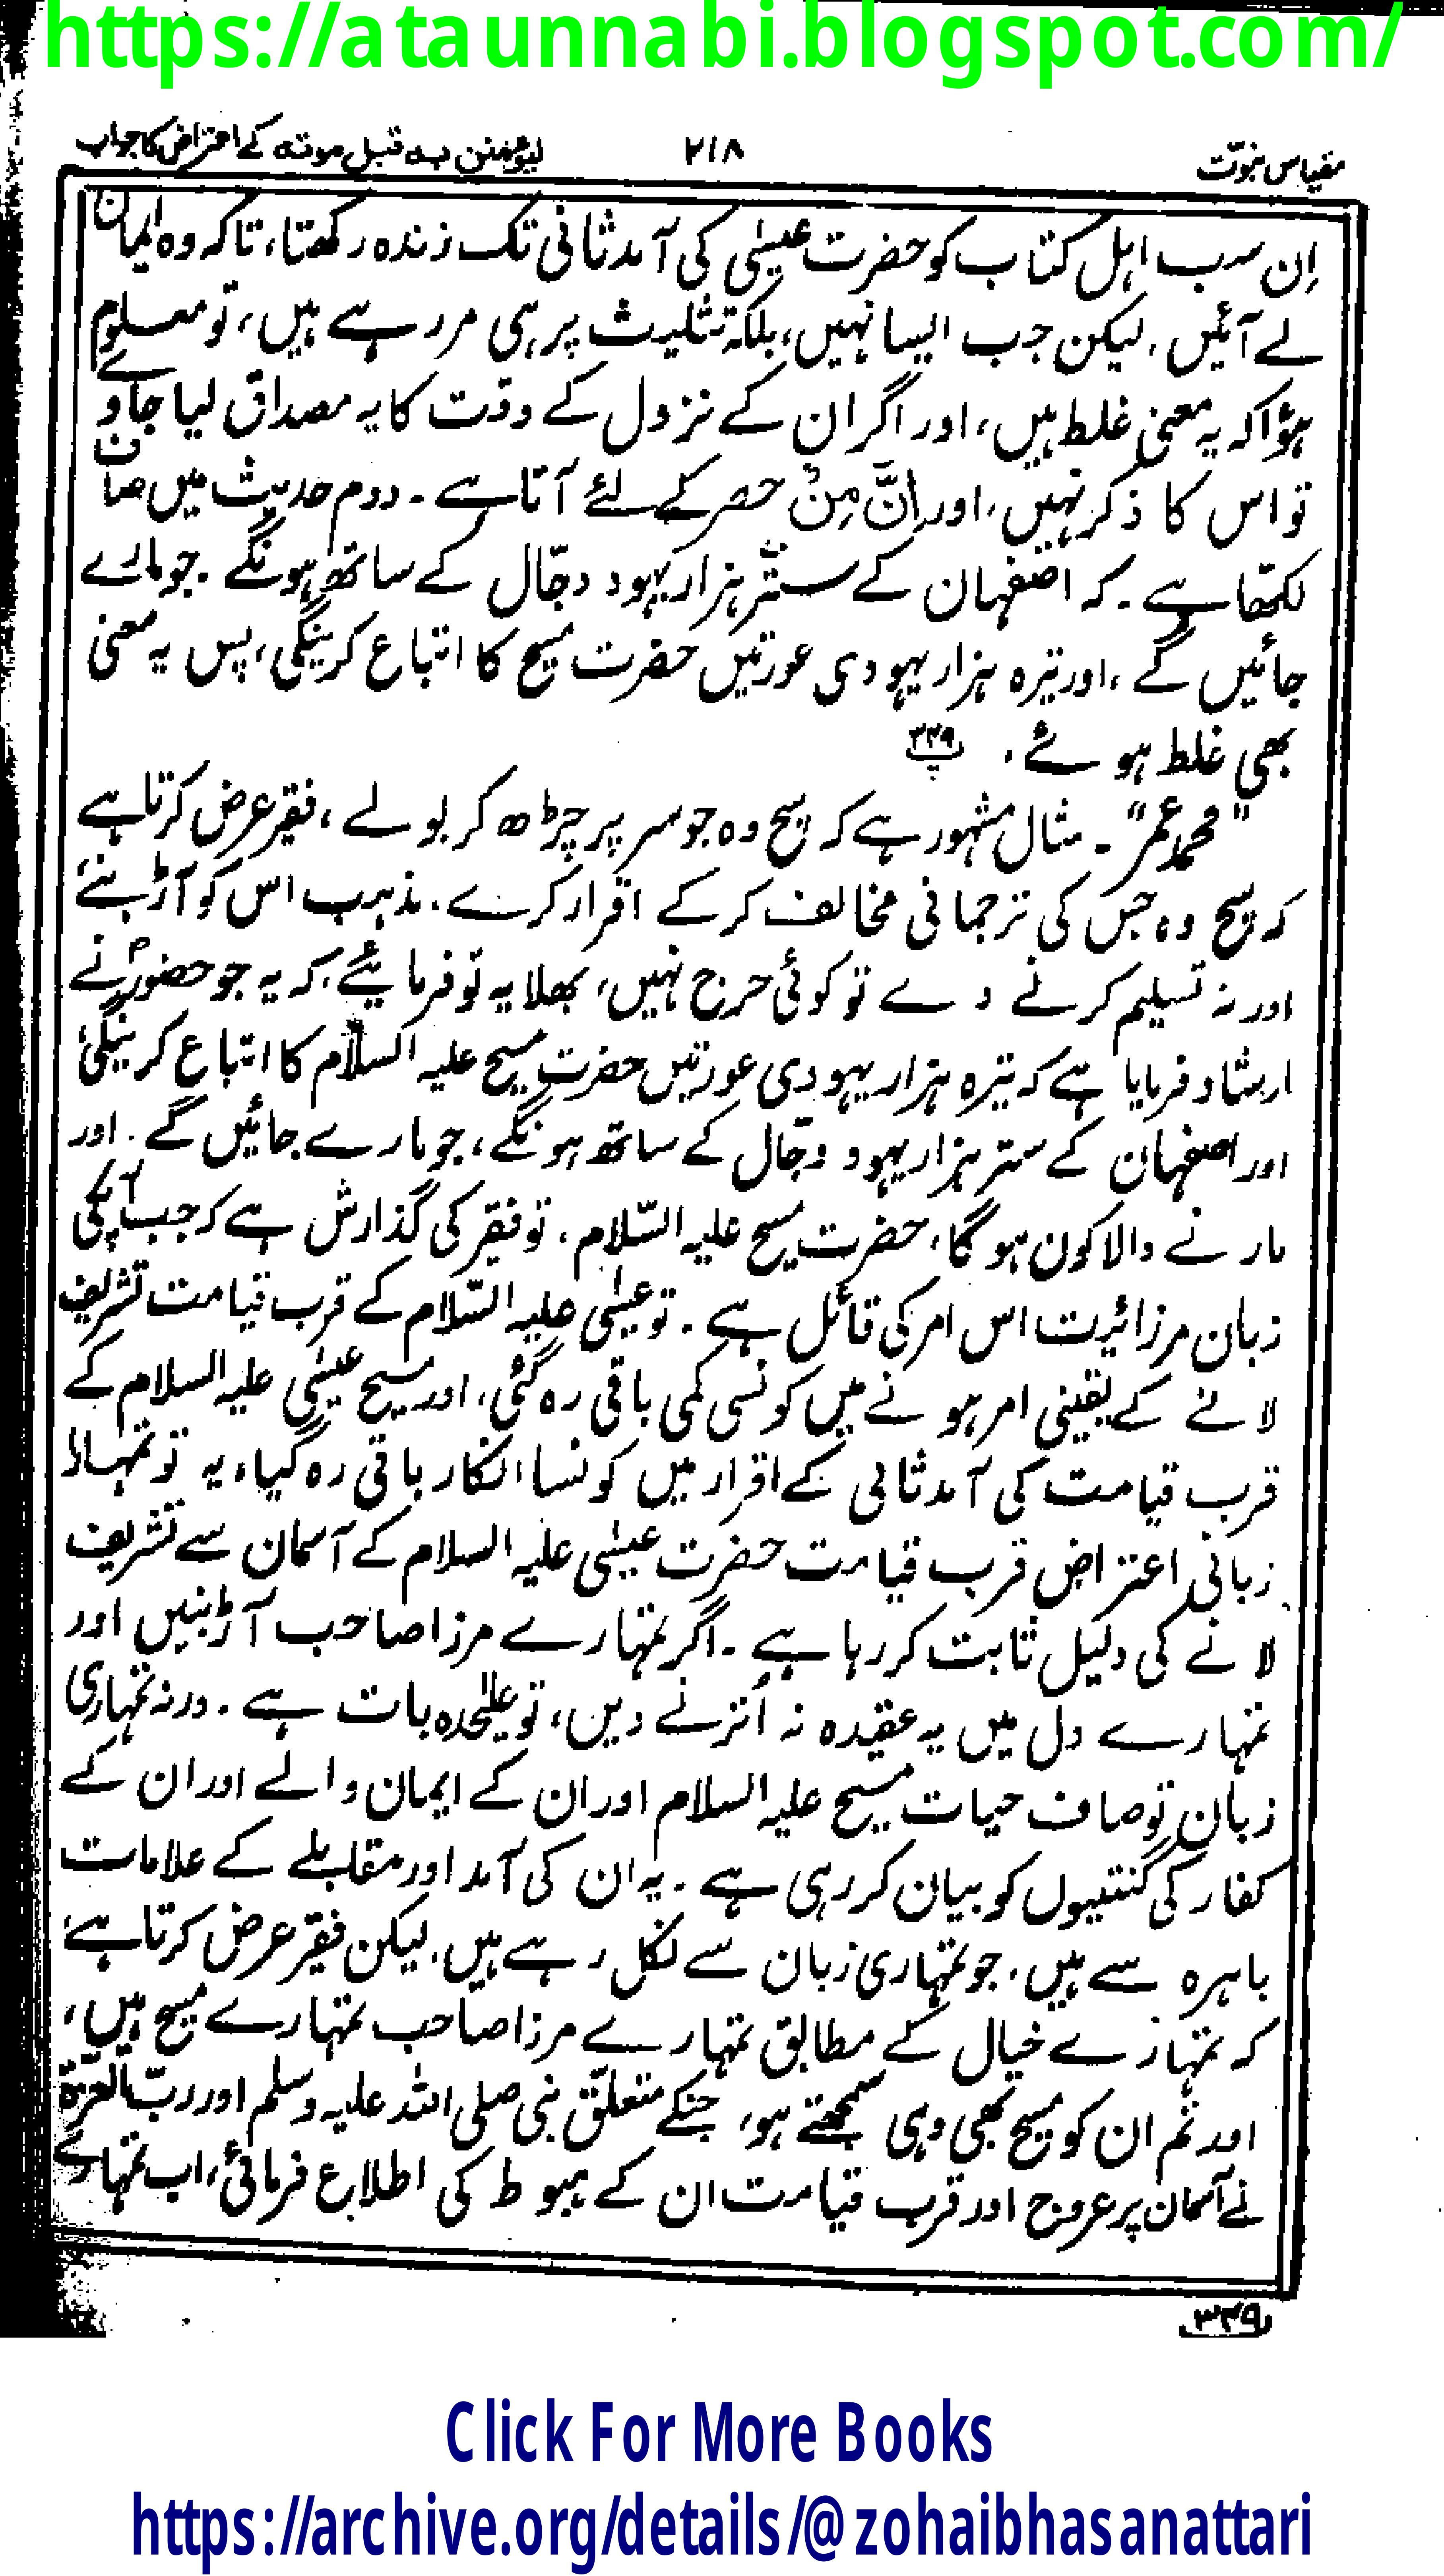 https://ataunnabi.blogspot.com/
مقیاس نبوّت ۲۱۸ لیؤمنن بہ قبل موتہ کے اعتراض کا جواب
اِن سب اہل کتاب کو حضرت عیسٰی کی آمد ثانی تک زندہ رکھتا، تاکہ وہ ایمان
لے آئیں، لیکن جب ایسا نہیں، بلکہ تثلیث پر ہی مر رہے ہیں، تو معلوم
ہؤا کہ یہ معنی غلط ہیں، اور اگر ان کے نزول کے وقت کا یہ مصداق لیا جاوے
تو اس کا ذکر نہیں، اور اِنَّ مِنْ حصر کے لئے آتا ہے۔ دوم حدیث میں صاف
لکھّا ہے۔ کہ اصفہان کے ستّر ہزار یہود دجّال کے ساتھ ہونگے۔ جو مارے
جائیں گے، اور تیرہ ہزار یہودی عورتیں حضرت مسیح کا اتباع کرینگی، پس یہ معنی
بھی غلط ہوئے۔ پ ۳۴۹
"محمد عمر"۔ مثال مشہور ہے کہ سچ وہ جو سر پر چڑھ کر بولے، فقیر عرض کرتا ہے
کہ سچ وہ جس کی ترجمانی مخالف کر کے اقرار کرے۔ مذہب اس کو آڑ بنے
اور نہ تسلیم کرنے دے تو کوئی حرج نہیں، بھلا یہ تو فرمایئے، کہ یہ جو حضورؐ نے
ارشاد فرمایا ہے کہ تیرہ ہزار یہودی عورتیں حضرت مسیح علیہ السلام کا اتباع کرینگی
اور اصفہان کے ستر ہزار یہود دجّال کے ساتھ ہونگے، جو مارے جائیں گے۔ اور
مارنے والا کون ہو گا، حضرت مسیح علیہ السّلام۔ تو فقیر کی گذارش ہے کہ جب آپکی
زبان مرزائیت اس امر کی قائل ہے۔ تو عیسٰی علیہ السّلام کے قرب قیامت تشریف
لانے کے یقینی امر ہونے میں کونسی کمی باقی رہ گئی، اور مسیح عیسٰی علیہ السلام کے
قرب قیامت کی آمد ثانی کے اقرار میں کونسا انکار باقی رہ گیا، یہ تو تمہارا
زبانی اعتراض قرب قیامت حضرت عیسٰی علیہ السلام کے آسمان سے تشریف
لانے کی دلیل ثابت کر رہا ہے۔ اگر تمہارے مرزا صاحب آڑ بنیں اور
تمہارے دل میں یہ عقیدہ نہ اُترنے دیں، تو علیٰحدہ بات ہے۔ ورنہ تمہاری
زبان تو صاف حیات مسیح علیہ السلام اور ان کے ایمان والے اور ان کے
کفار کی گنتیوں کو بیان کر رہی ہے۔ یہ ان کی آمد اور مقابلے کے علامات
باہرہ سے ہیں، جو تمہاری زبان سے نکل رہے ہیں، لیکن فقیر عرض کرتا ہے
کہ تمہارے خیال کے مطابق تمہارے مرزا صاحب تمہارے مسیح ہیں،
اور تم ان کو مسیح بھی وہی سمجھتے ہو، جنکے متعلّق نبی صلی اللہ علیہ وسلم اور ربّ العزّۃ
نے آسمان پر عروج اور قرب قیامت ان کے ہبوط کی اطلاع فرمائی، اب تمہارے
۳۴۹
Click For More Books
https://archive.org/details/@zohaibhasanattari